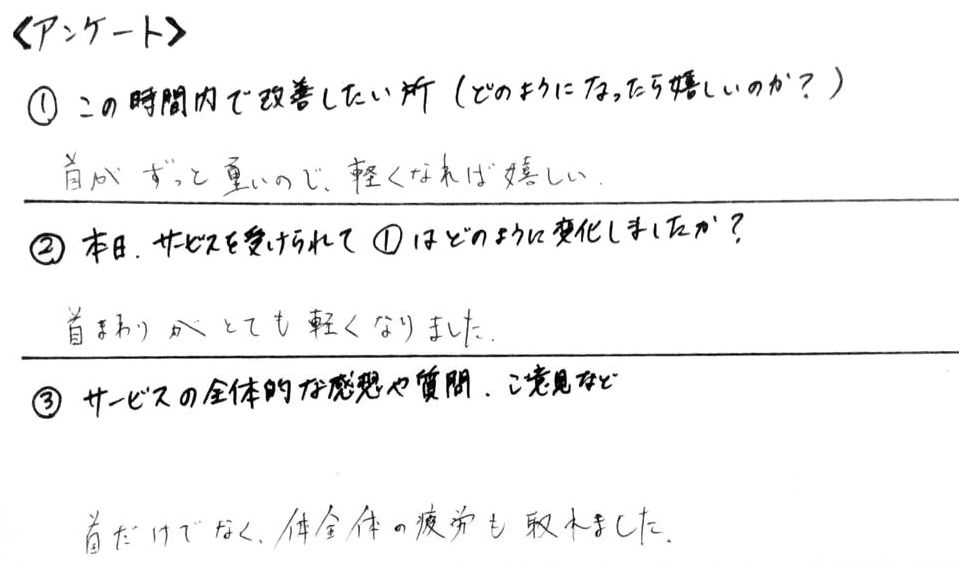 〈アンケート〉
① この時間内で改善したい所（どのようになったら嬉しいのか？）
首がずっと重いので、軽くなれば嬉しい.
② 本日. サービスを受けられて①はどのように変化しましたか？
首まわりがとても軽くなりました.
③ サービスの全体的な感想や質問. ご意見など
首だけでなく、体全体の疲労も取れました.